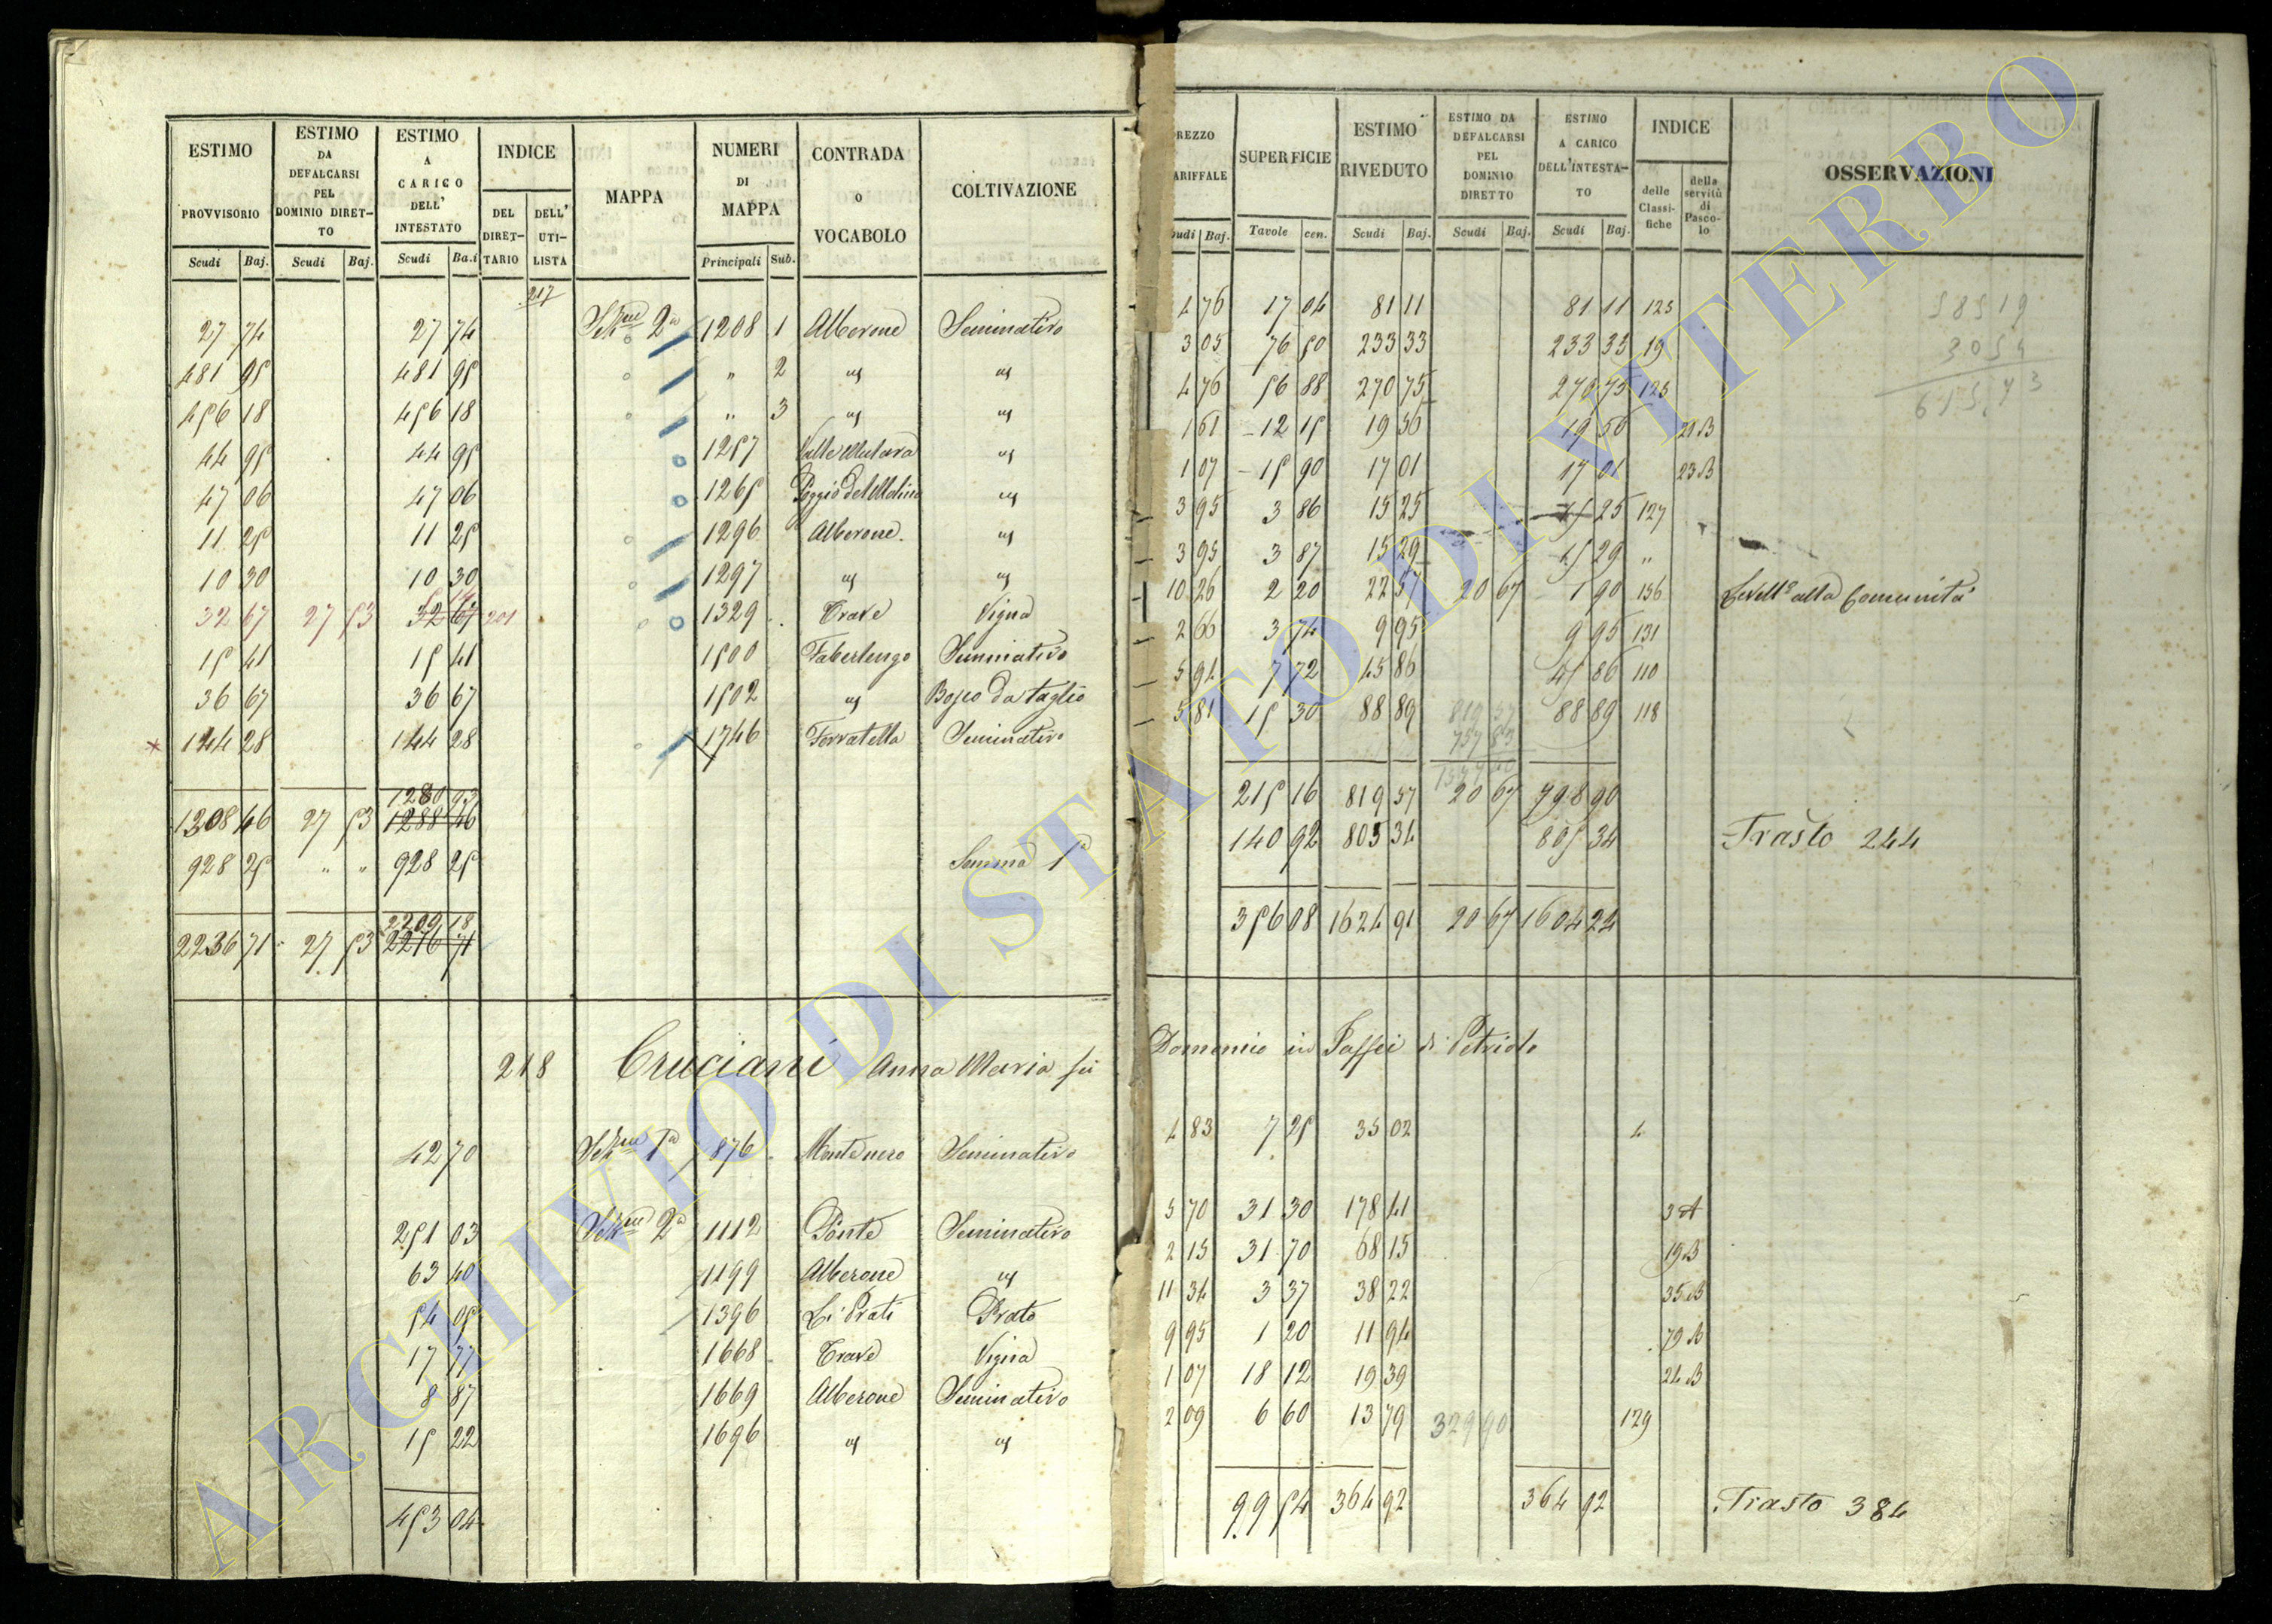 ESTIMO PROVVISORIO | ESTIMO DA DEFALCARSI PEL DOMINIO DIRETTO | ESTIMO A CARICO DELL' INTESTATO | INDICE | MAPPA | NUMERI DI MAPPA | CONTRADA o VOCABOLO | COLTIVAZIONE
DEL DIRETTARIO | DELL' UTILISTA
Scudi | Baj. | Scudi | Baj. | Scudi | Ba.i | Principali | Sub.
217
27 74 | 27 74 | Sez.ne 2a | 1208 | 1 | Alberone | Seminativo
481 95 | 481 95 | " | 2 | us | us
456 18 | 456 18 | " | 3 | us | us
44 95 | 44 95 | 1257 | us
47 06 | 47 06 | 1265 | Poggio del Molino | us
11 25 | 11 25 | 1296 | Alberone. | us
10 30 | 10 30 | 1297 | us | us
32 67 | 27 53 | 32 67 | 201 | 1329 | Trave | Vigna
15 41 | 15 41 | 1500 | Faberlengo | Seminativo
36 67 | 36 67 | 1502 | us | Bosco da taglio
144 28 | 144 28 | 1746 | Ferratella | Seminativo
1280 93
1308 46 | 27 53 | 1288 46
928 25 | " " | 928 25 | Somma 1a
2209 18
2236 71 | 27 53 | 2216 71
218 Cruciani Anna Maria fù
42 70 | Sez.ne 1a | 876 | Montenero | Seminativo
251 03 | Sez.ne 2a | 1112 | Ponte | Seminativo
63 40 | 1199 | Alberone | us
54 05 | 1396 | Li Prati | Prato
17 77 | 1668 | Trave | Vigna
8 87 | 1669 | Alberone | Seminativo
15 22 | 1696 | us | us
453 04
REZZO ARIFFALE | SUPERFICIE | ESTIMO RIVEDUTO | ESTIMO DA DEFALCARSI PEL DOMINIO DIRETTO | ESTIMO A CARICO DELL'INTESTATO | INDICE | OSSERVAZIONI
delle Classifiche | della servitù di Pascolo
udi | Baj. | Tavole | cen. | Scudi | Baj. | Scudi | Baj. | Scudi | Baj.
4 76 | 17 04 | 81 11 | 81 11 | 125
3 05 | 76 50 | 233 33 | 233 33 | 19
4 76 | 56 88 | 270 75 | 270 75 | 125
1 61 | 12 15 | 19 56 | 19 56 | 21 B
1 07 | 15 90 | 17 01 | 17 01 | 23 B
3 95 | 3 86 | 15 25 | 15 25 | 127
3 95 | 3 87 | 15 29 | 15 29 | "
10 26 | 2 20 | 22 57 | 20 67 | 1 90 | 136 | Livello alla Comunità
2 66 | 3 74 | 9 95 | 9 95 | 131
5 94 | 7 72 | 45 86 | 45 86 | 110
5 81 | 15 30 | 88 89 | 88 89 | 118
215 16 | 819 57 | 20 67 | 798 90
140 92 | 805 34 | 805 34 | Trasto 244
356 08 | 1624 91 | 20 67 | 1604 24
Domenico in Passei di Petriolo
4 83 | 7 25 | 35 02 | 4
5 70 | 31 30 | 178 41 | 3 A
2 15 | 31 70 | 68 15 | 19 B
11 34 | 3 37 | 38 22 | 35 B
9 95 | 1 20 | 11 94 | 79 B
1 07 | 18 12 | 19 39 | 24 B
2 09 | 6 60 | 13 79 | 329 90 | 129
99 54 | 364 92 | 364 92 | Trasto 384
ARCHIVIO DI STATO DI VITERBO